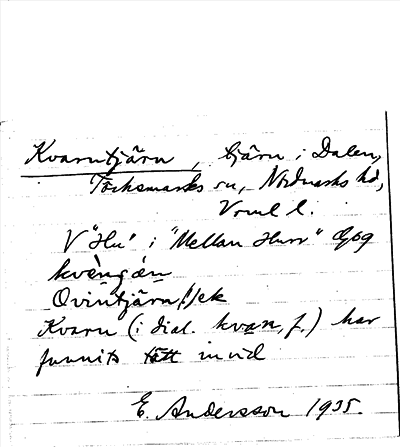 Kvarntjärn, tjärn i Dalen,
Töcksmarks sn, Nordmarks hd,
Vrml l.
V "Hu" i "Mellan Hurr"
kvèngæn
Qvintjärn
Kvarn (i dial. kvan, f.) har
funnits tätt invid
E. Andersson 1935.